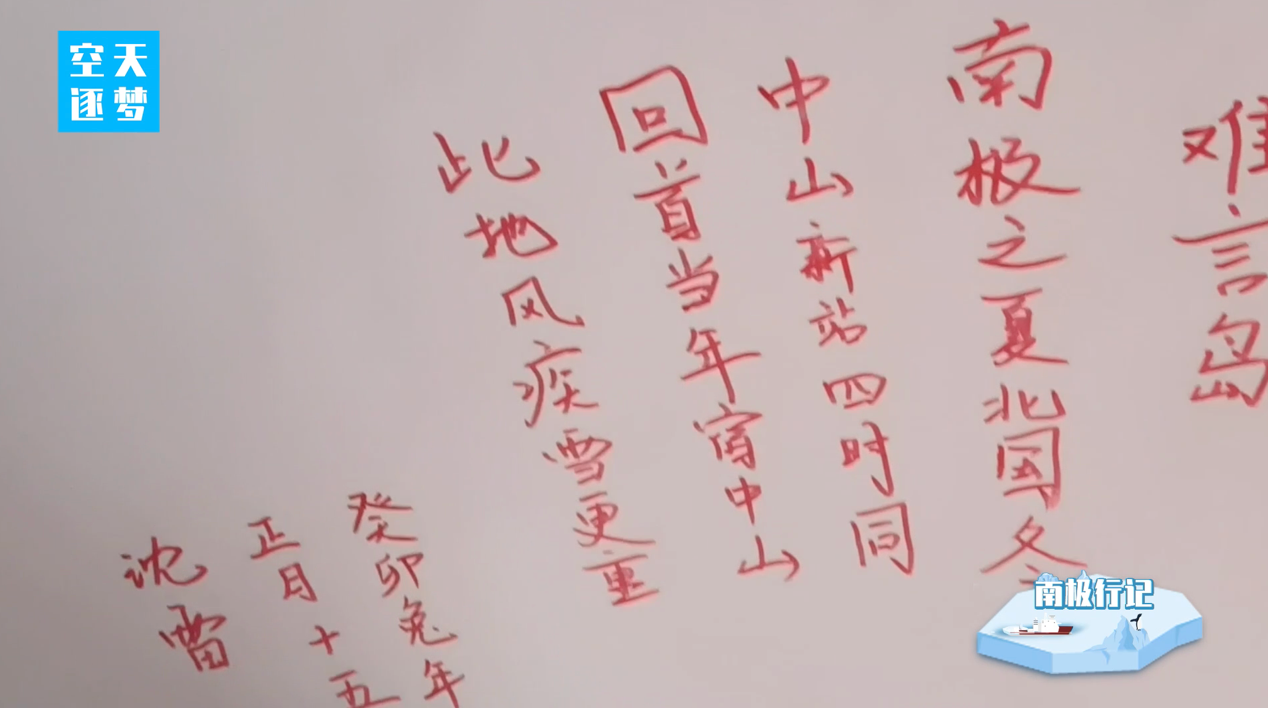 空天
逐梦
难言岛
南极之夏北国冬
中山新站四时同
回首当年宿中山
此地风疾雪更重
癸卯兔年
正月十五
沈雷
南极行记